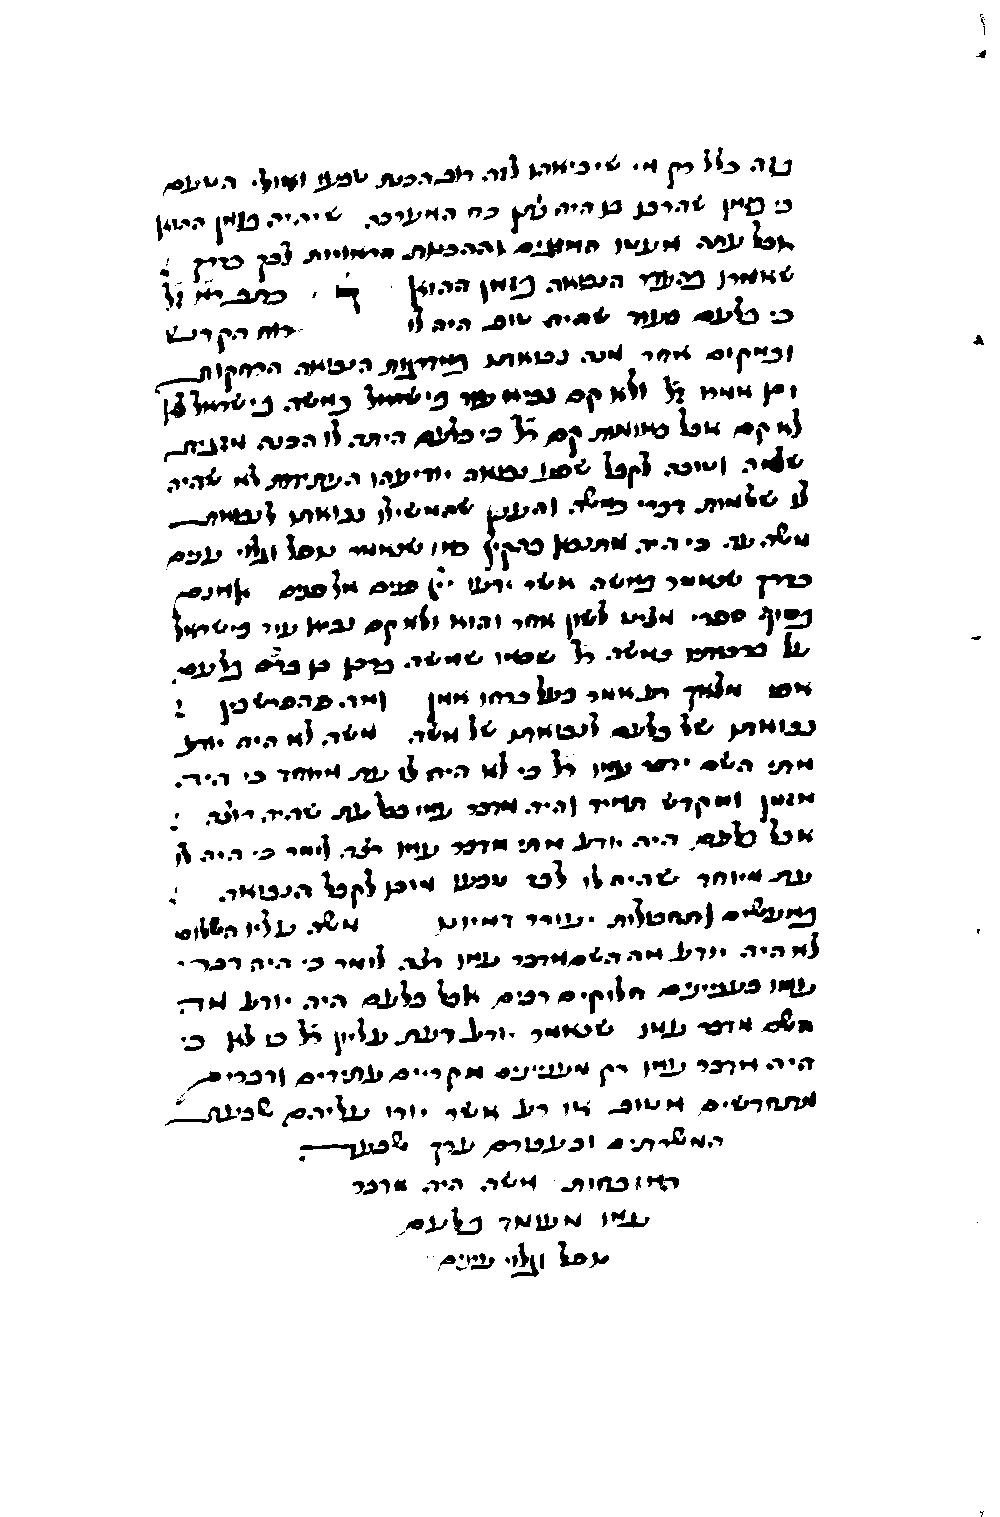 בזה כלל רק מי שיביאהו לזה רוב הכנת טבעו ואולי השעם
כי בזמן שהרכן בו היה נתן כח המערכה שיהיה בזמן ההוא
אבל עתה מעטו הזמנים וההכנות הראויות לכך כדרך
שאמרנו בהעדר הנבואה בזמן ההוא ד כתב רש זל
כי בלעם בעוד שהית שוב היה לו רוח הקדש
ובמקום אחר מנה נבואתו במדרגות הנבואה הרחקות
ומן אמרו זל ולא קם נביא עוד בישראל כמשה בישראל לא
לא קם אבל באומות קם רל כי בלעם היתה לו הכנה מזגית
שלמה וטובה לקבל שפע נבואה יודיעהו העתידות לא שהיה
לו שלמות דברי כמשה והענין שהמשילו נבואתו לנבואת
משה עה כי היה מתנבא בהקיץ כמו שנאמר נופל וגלוי עינים
כדרך שנאמר במשה אשר ידעו ייי פנים אל פנים אמנם
בסוף ספרי מצינו לשון אחר והוא ולא קם נביא עוד בישראל
על כרחם כמשה רל
אם מלאך רע אמר בעל כרחו אמן ומה שהפרש בין
נבואתו של בלעם לנבואתו של משה משה לא היה יודע
מתי השם ידבר עמו רל כי לא היה לו עת מיוחד כי היה
מזמן ומקדש תמיד והיה מדבר עמו בכל עת שהיה רוצה
אבל בלעם היה יודע מתי מדבר עמו רצה לומר כי היה לו
עת מיוחד שהיה לו לבד טבעו מוכן לקבל הנבואה
במעשים ותחבולות יעורר דמיונו משה עליו השלום
לא היה יודע מה השם מדבר עמו רצה לומר כי היה דבריו
עמו בעניינים חלוקים רבים אבל בלעם היה יודע מה
השם מדבר עמו שנאמר יודע דעת עליון רל כו לא כי
היה מדבר עמו רק מעניינים מקריים עתידים ודברים
מתחדשים מטוב או רע אשר יורו עליהם שבעת
המשרתים ובעטרם ערך שבעה
המזבחות משה היה מדבר
עמו מעומד בלעם
נופל וגלוי עינים